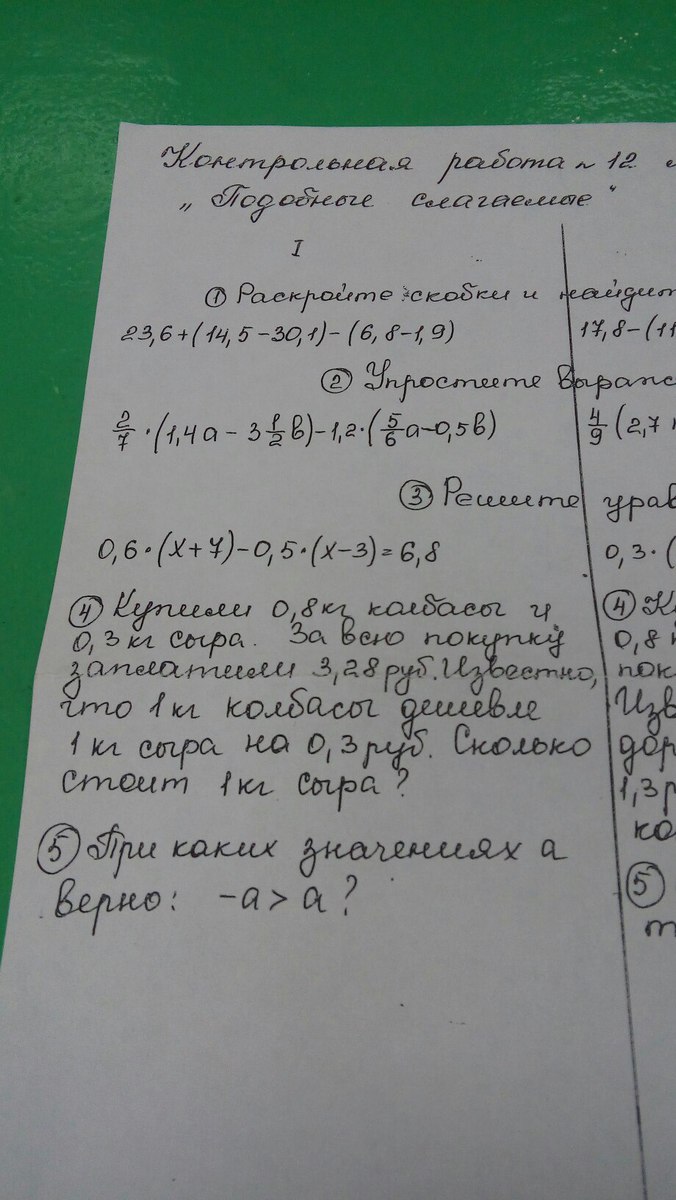 Контрольная работа № 12
„Подобные слагаемые“
I
① Раскройте скобки и найдит
23,6+(14,5-30,1)-(6,8-1,9)
17,8-(11
② Упростите выраж
2/7·(1,4a - 3 1/2в)-1,2·(5/6a-0,5в)
4/9(2,7
③ Решите урав
0,6·(x+7)-0,5·(x-3)=6,8
0,3·(
④ Купили 0,8кг колбасы и
0,3кг сыра. За всю покупку
заплатили 3,28руб. Известно,
что 1кг колбасы дешевле
1кг сыра на 0,3руб. Сколько
стоит 1кг сыра?
⑤ При каких значениях а
верно: -a > a?
④ К
0,8
пок
Изв
дор
1,3р
ко
⑤
т